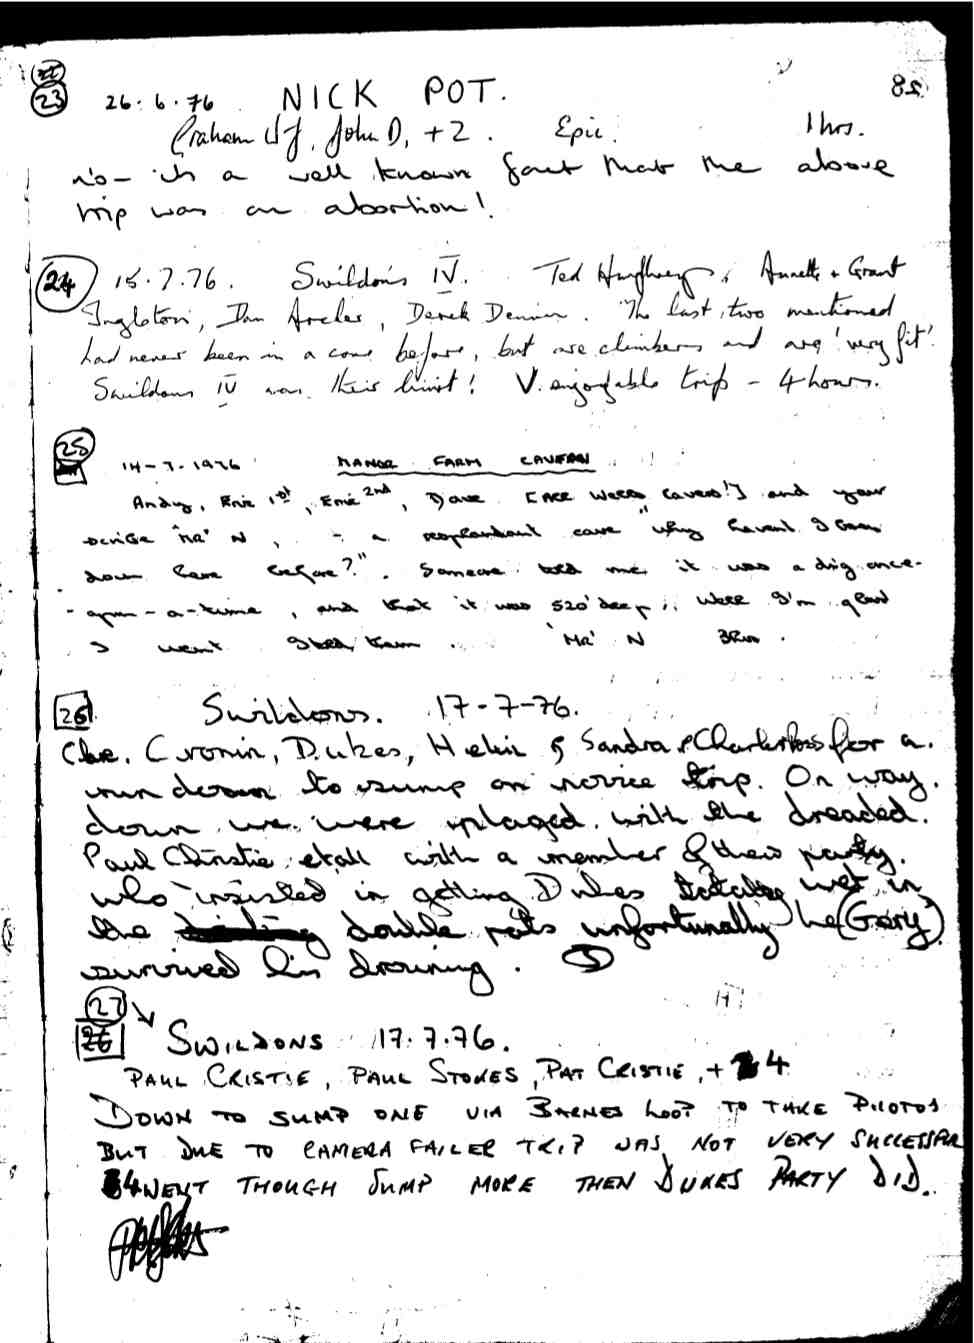 28
23 26.6.76 NICK POT.
Graham WJ, John D, +2. Epic. 1 hrs.
No - its a well known fact that the above
trip was an abortion!
24 15.7.76. Swildons IV. Ted Humphreys, Annette & Grant
Ingleton, Ian, Derek. The last two mentioned
had never been in a cave before, but are climbers and are 'very fit'.
Swildons IV was their limit! V. enjoyable trip - 4 hours.
25 14-7-1976 MANOR FARM CAVERN
Andy, Eric 1st, Eric 2nd, Dave [ALL WERE CAVERS!] and your
scribe 'MR' N, - a resplendent cave "why havent I been
down here before?". Someone told me it was a dig once-
-upon-a-time, and that it was 520' deep; Were I'm glad
I went I told them 'MR' N
26 Swildons. 17-7-76.
Cronin, Dukes, Helin & Sandra & Charles for a
run down to sump on novice trip. On way
down we were plaged with the dreaded
Paul Christie etall with a member of there party
who insisted in getting Dukes totaley wet in
the double pots unfortunally he (Gary)
survived his drowning.
27 26 SWILDONS 17.7.76.
PAUL CRISTIE, PAUL STOKES, PAT CRISTIE, + 4
DOWN TO SUMP ONE VIA BARNES LOOP TO TAKE PHOTOS
BUT DUE TO CAMERA FAILER TRIP WAS NOT VERY SUCCESSFUL
4 WENT THOUGH SUMP MORE THEN DUKES PARTY DID.